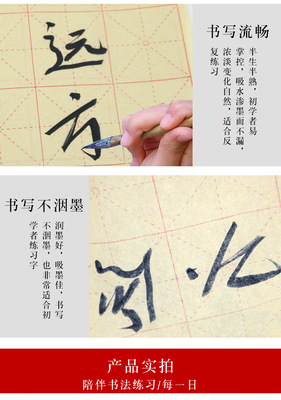 书写流畅
半生半熟，初学者易
掌控，吸水渗墨而不漏，
浓淡变化自然，适合反
复练习
远方
书写不洇墨
润墨好，吸墨佳，书写
不洇墨，也非常适合初
学者练习字
产品实拍
陪伴书法练习/每一日